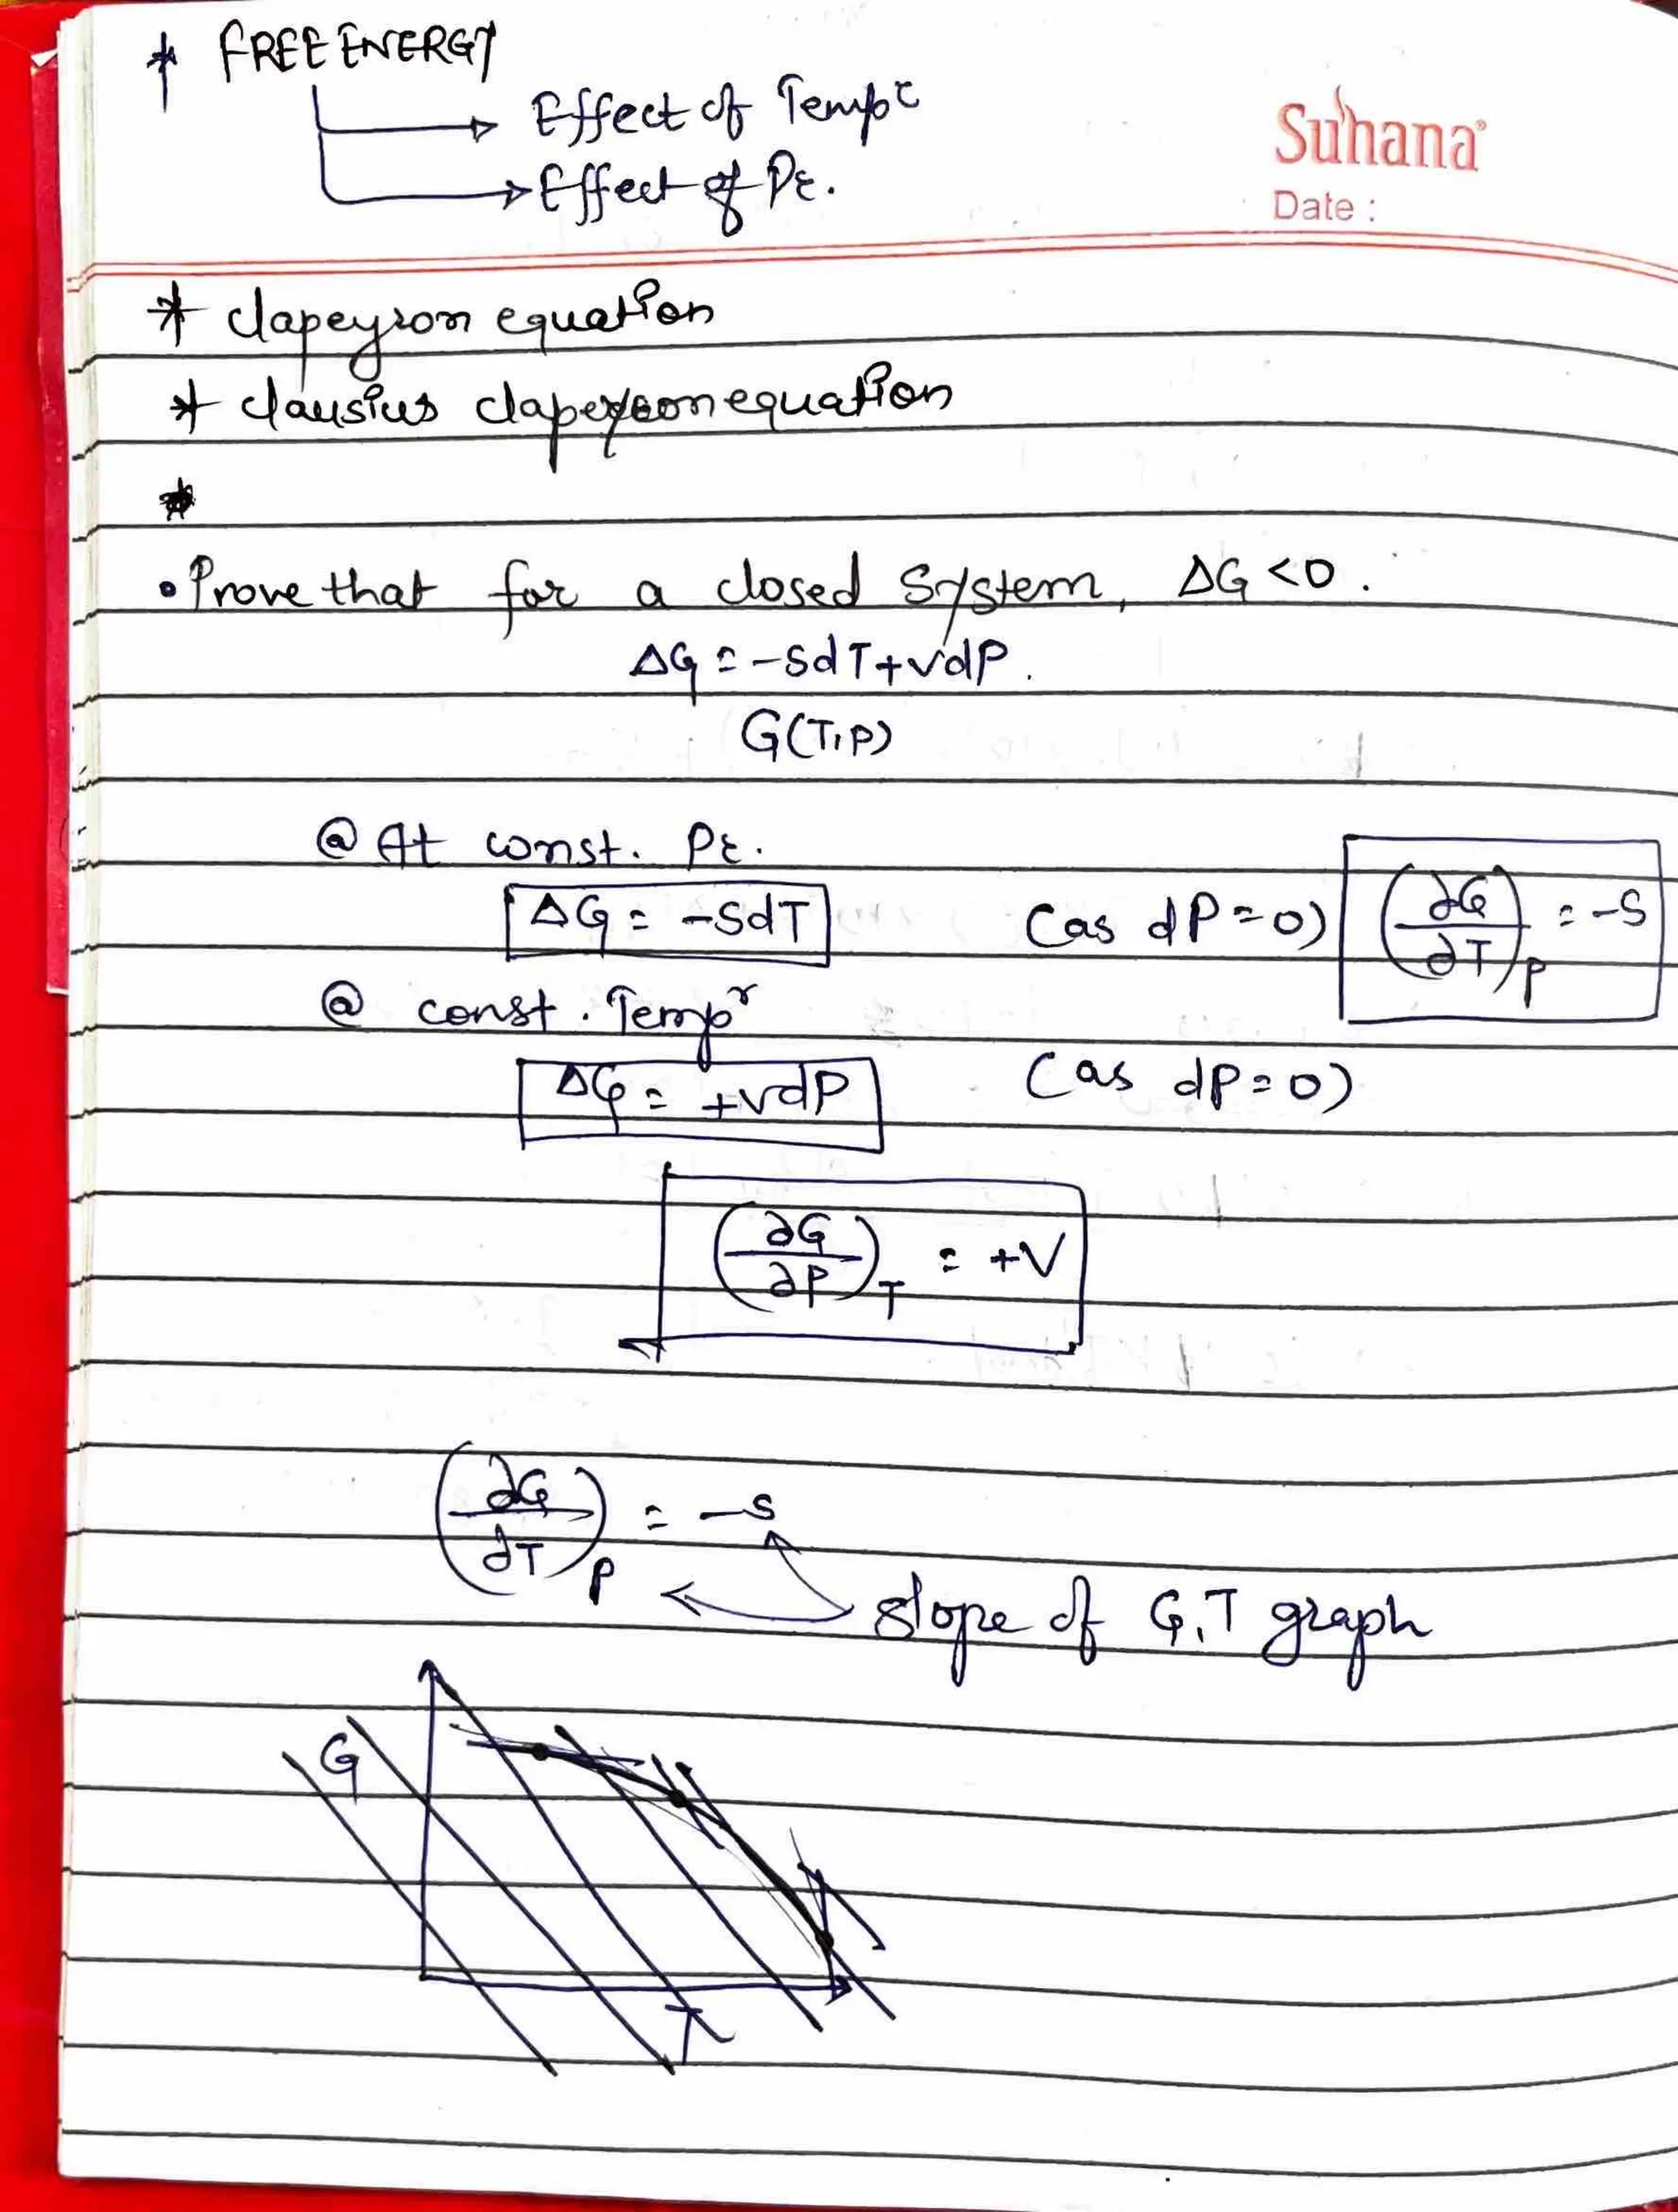 * FREE ENERGY
Effect of Tempr
Effect of Pr.
Suhana®
Date :
* Clapeyron equation
* Clausius Clapeyron equation
*
• Prove that for a closed System, ΔG < 0.
ΔG = -SdT + VdP.
G(T,P)
@ At const. Pr.
ΔG = -SdT (as dP = 0) (∂G/∂T)P = -S
@ const. Tempr
ΔG = +VdP (as dP = 0)
(∂G/∂P)T = +V
(∂G/∂T)P = -S
slope of G,T graph
G
T